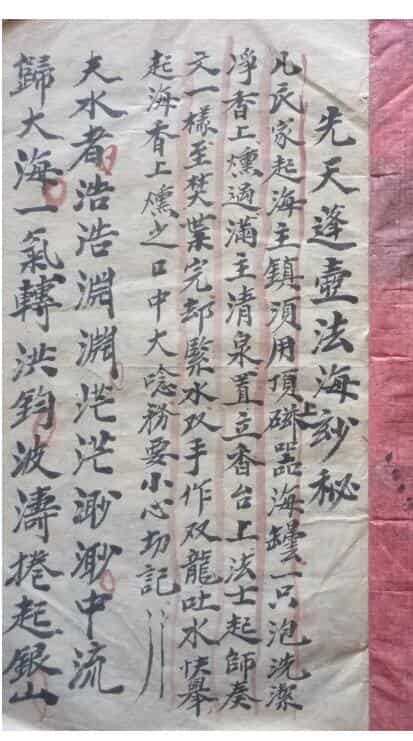 先天蓬壺法海玅秘
凡民家起海主鎮須用頂上磁器海罎一只泡洗潔
凈香上燻過滿主清泉置立香台上法士起師奏
文一樣至焚葉完却繄水双手作双龍吐水快舉
起海香上燻之口中大唸務要小心切記
夫水者浩浩淵淵茫茫渺渺中流
歸大海一氣轉洪鈞波濤捲起銀山